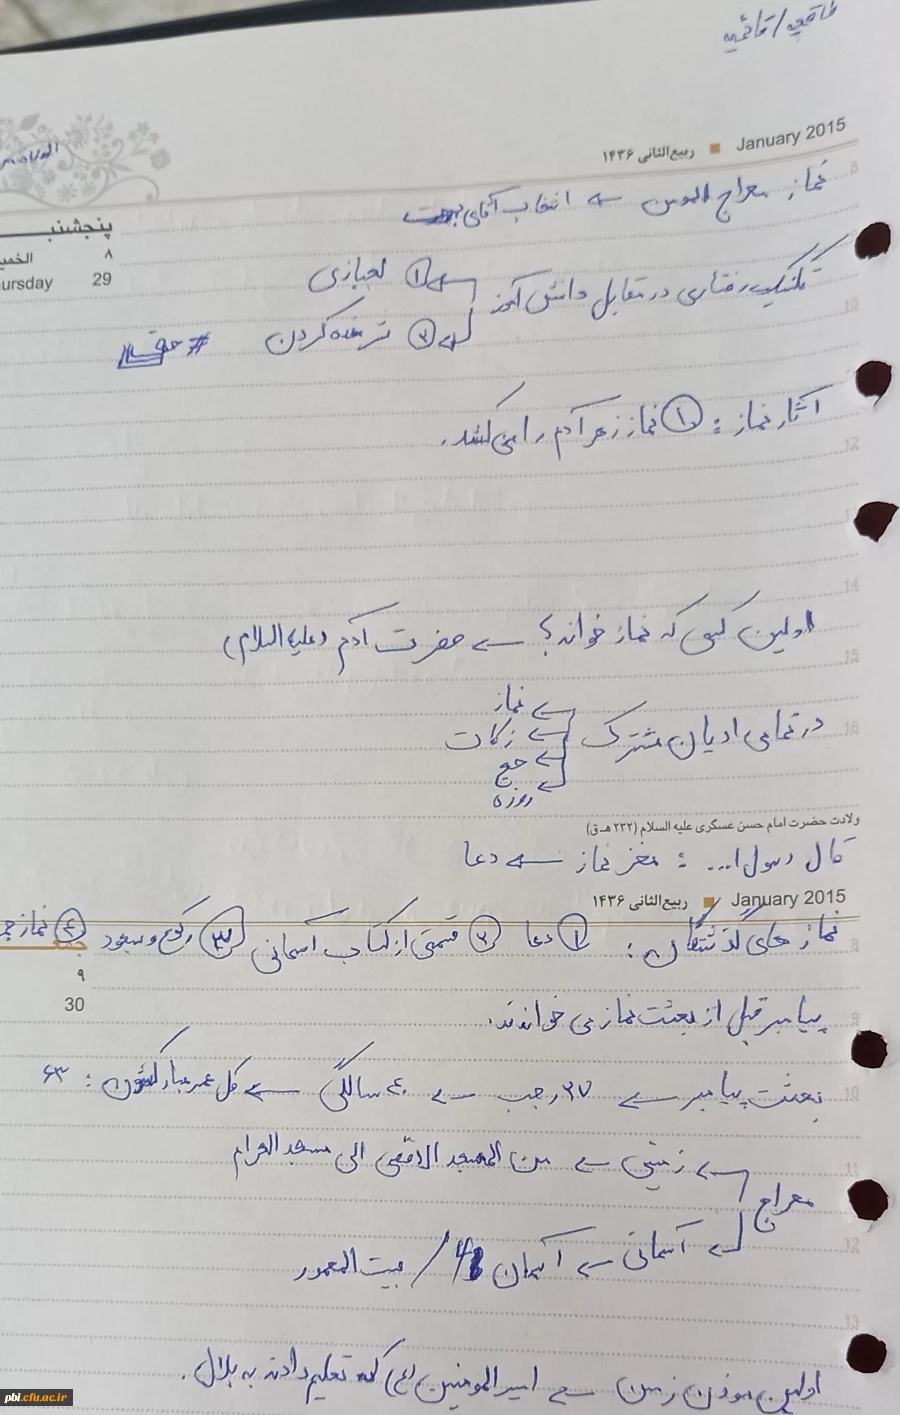 طاقچه/قائمیه
January 2015 ■ ربیع‌الثانی ۱۴۳۶
نماز معراج المومن ← انتخاب آقای بهجت
پنجشنبـ
۸ الخمیـ
ursday 29
تکنیک رفتاری در مقابل دانش آموز ← ① لجبازی
← ② شرمنده کردن #
آثار نماز : ① نماز زهر آدم را می‌کشد.
اولین کسی که نماز خواند؟ ← حضرت آدم (علیه السلام)
در تمامی ادیان مشترک ← نماز
← زکات
← حج
← روزه
ولادت حضرت امام حسن عسکری علیه السلام (۲۳۲ هـ.ق)
قال رسول ا... : مغز نماز ← دعا
January 2015 ■ ربیع‌الثانی ۱۴۳۶
نماز های گذشتگان : ① دعا ② قسمتی از کتاب آسمانی ③ رکوع و سجود ④ نماز
جمعه
۹
30
پیامبر قبل از بعثت نماز می خواندند.
بعثت پیامبر ← ۲۷ رجب ← ۴۰ سالگی ← کل عمر مبارکشون : ۶۳
معراج ← زمینی ← من المسجد الاقصی الی مسجد الحرام
← آسمانی ← آسمان ۴ / بیت المعمور
اولین موذن زمین ← امیرالمومنین (ع) که تعلیم دادند به بلال.
8
10
11
12
13
14
15
16
8
9
10
11
12
13
pbi.cfu.ac.ir